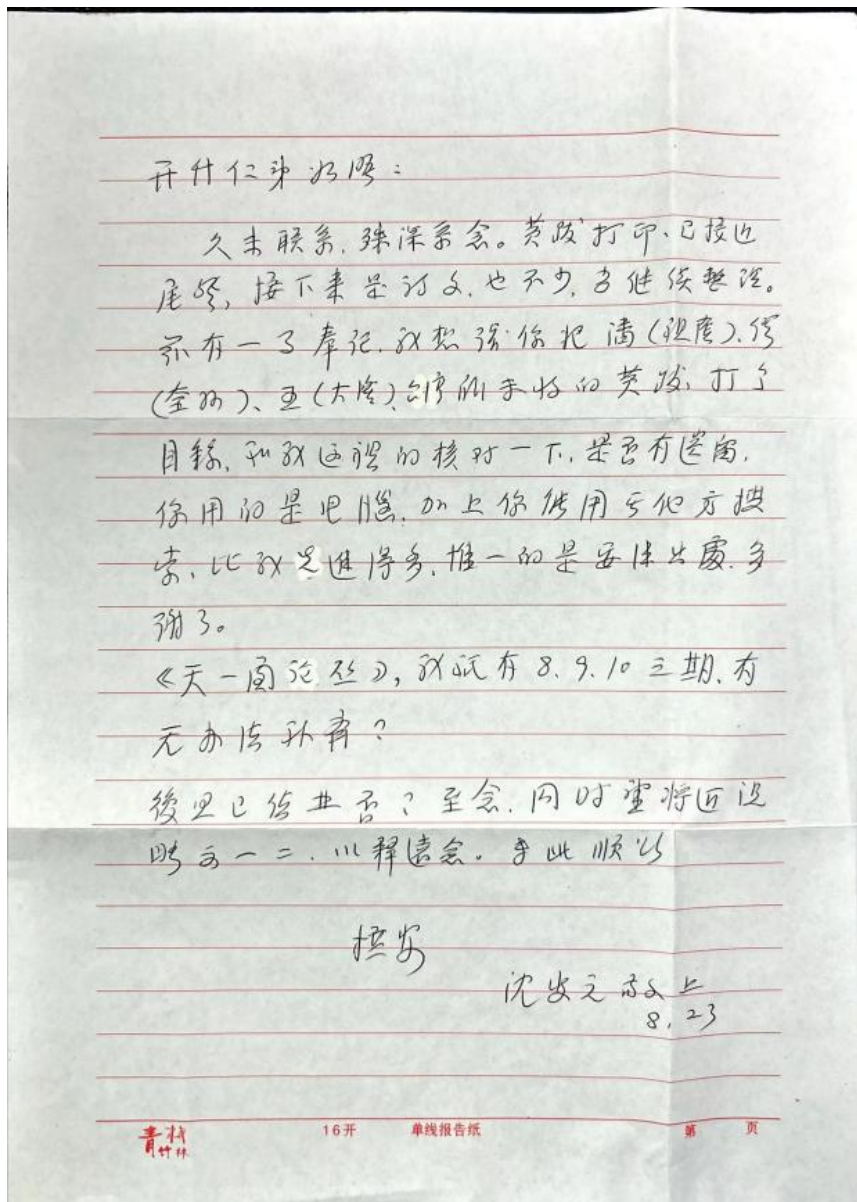 开什仁弟如晤：
久未联系，殊深系念。英跋打印，已接近
尾声，接下来是诗文，也不少，当继续整理。
另有一了奉记，我想请你把潘（祖荫）、
（金 ）、王（大隆）、 所未收的英跋，打了
目录，和我这里的核对一下，是否有遗留，
你用的是电脑，加上你能用其他方搜
索，比我先進得多，惟一的是要注出處，多
谢了。
《天一阁论丛》，我祇有8.9.10三期，有
无办法补齐？
後 已结业否？至念，同时望将近况
略示一二，以释遠念。专此顺颂
撰安
沈 元敬上
8.23
青竹林
16开 单线报告纸 第 页